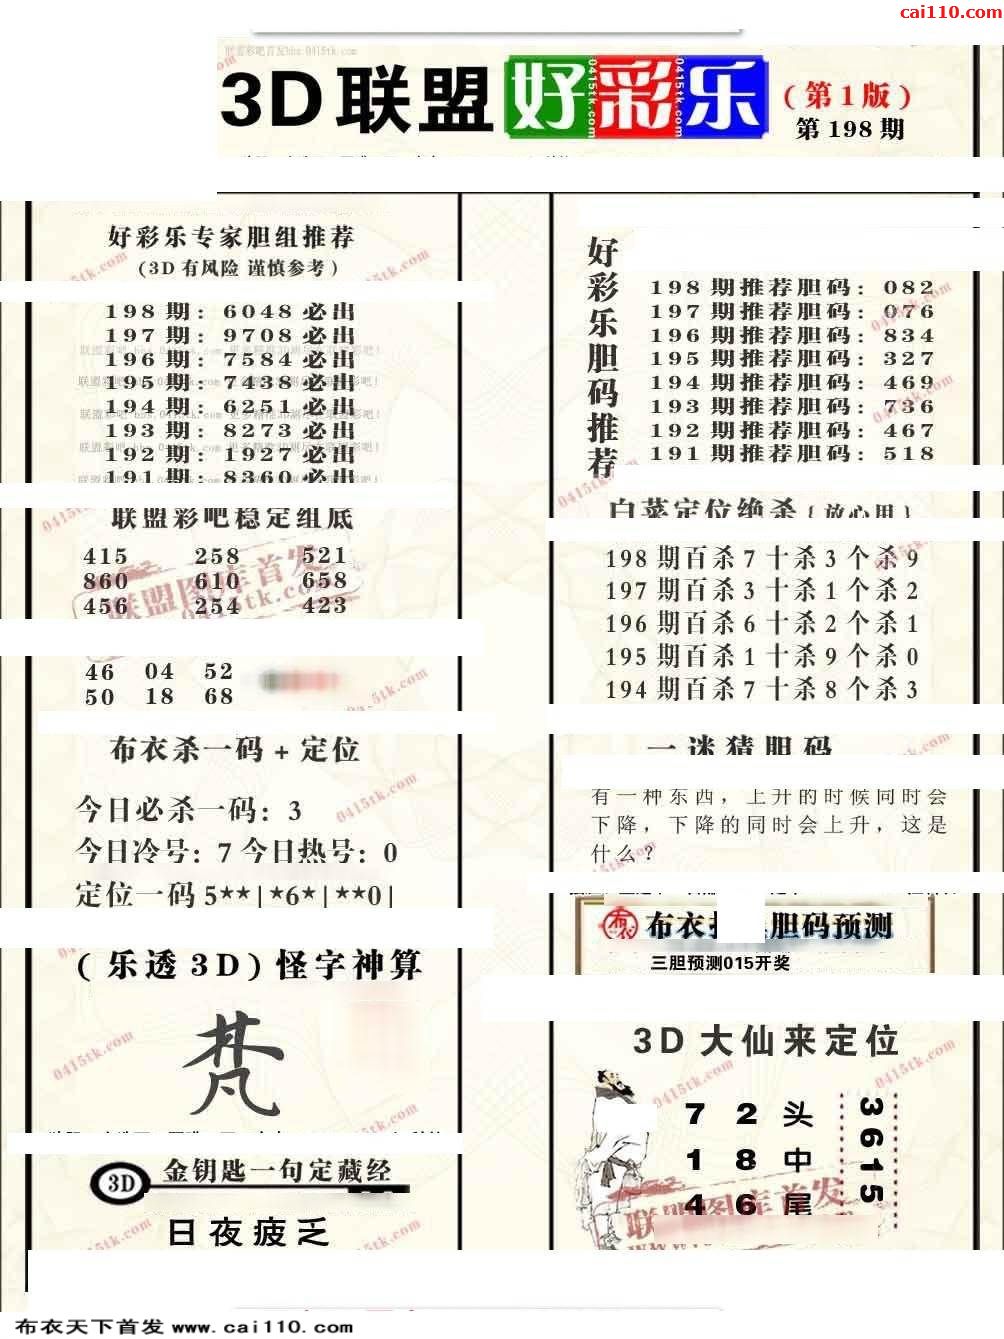 cai110.com
3D联盟好彩乐(第1版)
第198期
好彩乐专家胆组推荐
(3D有风险 谨慎参考)
198期: 6048必出
197期: 9708必出
196期: 7584必出
195期: 7438必出
194期: 6251必出
193期: 8273必出
192期: 1927必出
191期: 8360必出
联盟彩吧稳定组底
415 258 521
860 610 658
456 254 423
46 04 52
50 18 68
布衣杀一码+定位
今日必杀一码: 3
今日冷号: 7 今日热号: 0
定位一码5**|*6*|**0|
(乐透3D)怪字神算
梵
3D 金钥匙一句定藏经
日夜疲乏
好彩乐胆码推荐
198期推荐胆码: 082
197期推荐胆码: 076
196期推荐胆码: 834
195期推荐胆码: 327
194期推荐胆码: 469
193期推荐胆码: 736
192期推荐胆码: 467
191期推荐胆码: 518
白菜定位绝杀(放心用)
198期百杀7十杀3个杀9
197期百杀3十杀1个杀2
196期百杀6十杀2个杀1
195期百杀1十杀9个杀0
194期百杀7十杀8个杀3
一迷猜胆码
有一种东西，上升的时候同时会
下降，下降的同时会上升，这是
什么?
布衣 胆码预测
三胆预测015开奖
3D大仙来定位
7 2 头
1 8 中
4 6 尾
3615
联盟图库首发
0415tk.com
布衣天下首发 www.cai110.com